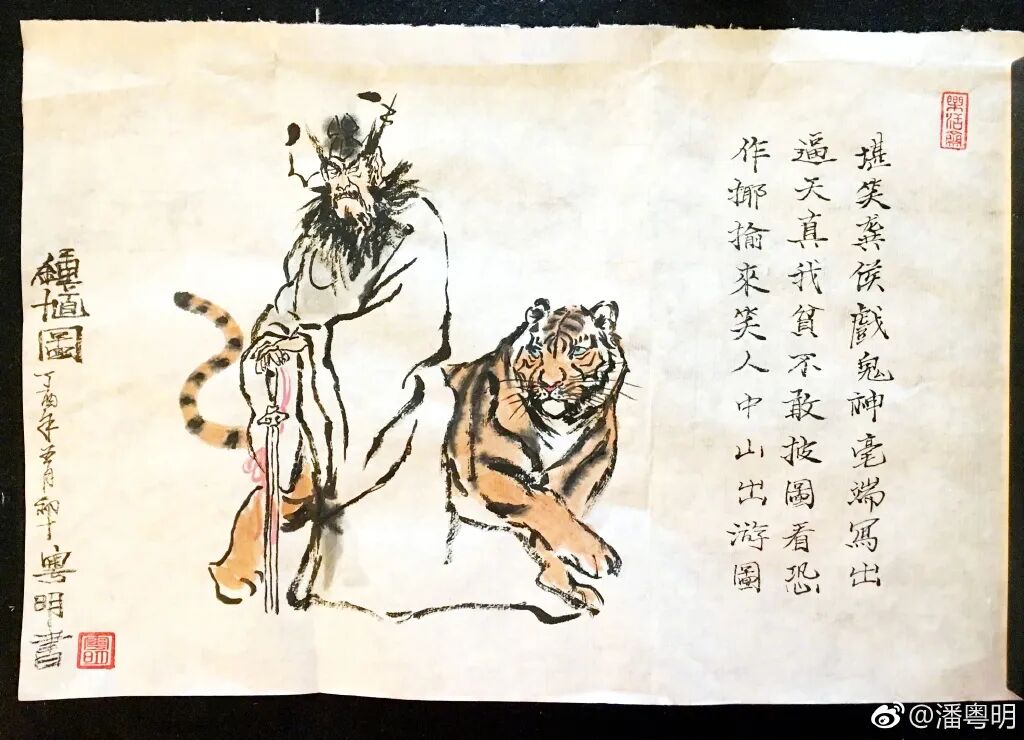 堪笑龔侯戲鬼神毫端寫出
逼天真我貧不敢披圖看恐
作揶揄來笑人中山出游圖
鍾馗圖
丁酉年月初十粵明書
粵明
@潘粤明